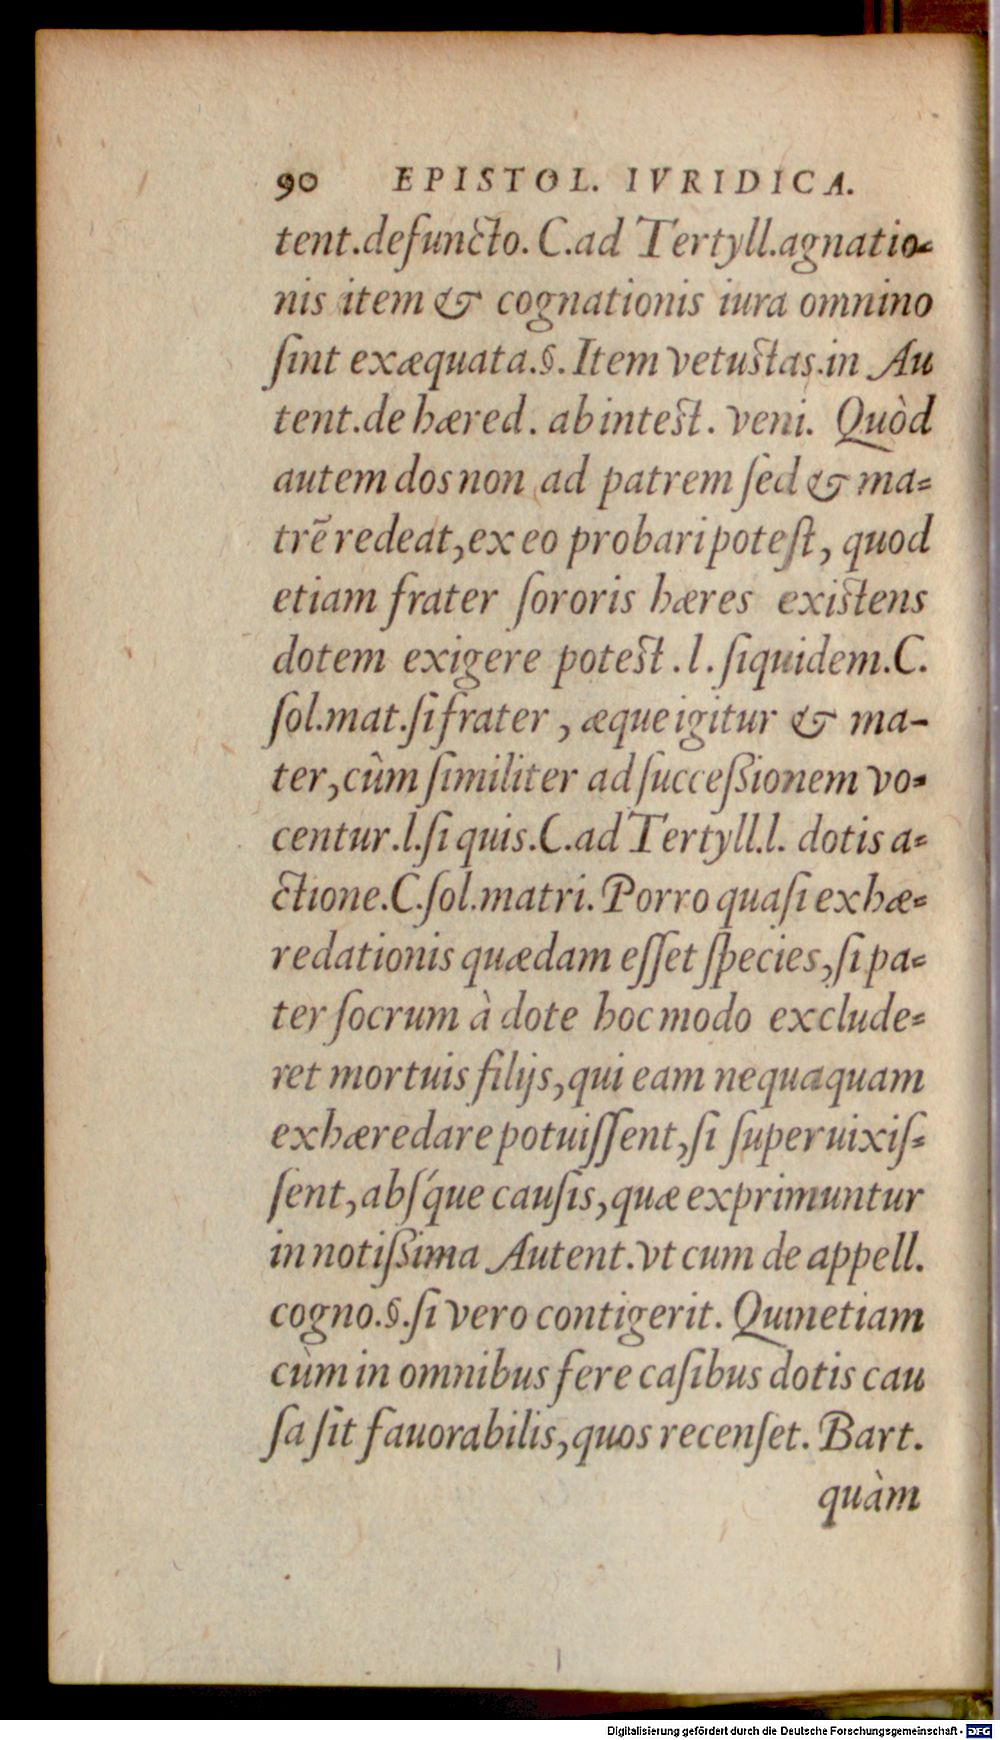 90 EPISTOL. IVRIDICA.
tent.defuncto. C.ad Tertyll.agnatio=
nis item & cognationis iura omnino
ſint exæquata.§. Item vetustas.in Au
tent.de hæred. ab intest. veni. Quòd
autem dos non ad patrem ſed & ma=
trẽ redeat, ex eo probari poteſt, quod
etiam frater ſororis hæres existens
dotem exigere potest. l. ſiquidem.C.
ſol.mat.ſi frater, æque igitur & ma-
ter, cûm ſimiliter ad ſucceßionem vo=
centur.l.ſi quis.C.ad Tertyll.l. dotis a=
ctione.C.ſol.matri. Porro quaſi exhæ=
redationis quædam eſſet ſpecies, ſi pa=
ter ſocrum à dote hoc modo exclude=
ret mortuis filijs, qui eam nequaquam
exhæredare potuiſſent, ſi ſuperuixiſ=
ſent, abſq́ue cauſis, quæ exprimuntur
in notißima Autent. vt cum de appell.
cogno.§.ſi vero contigerit. Quinetiam
cùm in omnibus fere caſibus dotis cau
ſa ſit fauorabilis, quos recenſet. Bart.
quàm
Digitalisierung gefördert durch die Deutsche Forschungsgemeinschaft - DFG